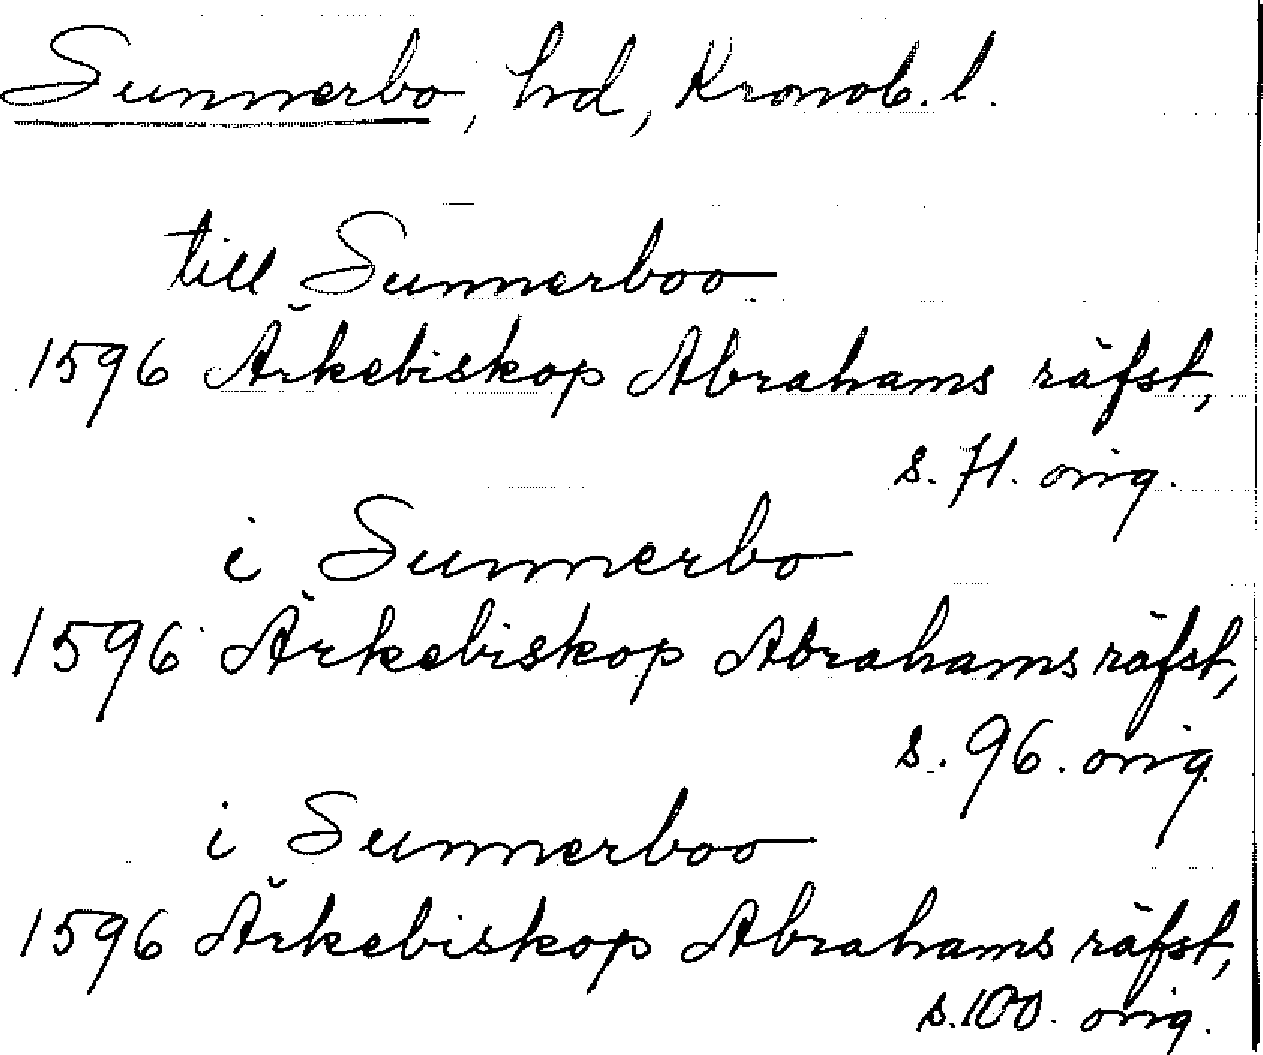 Sunnerbo, hd, Kronob. l.
till Sunnerboo
1596 Ärkebiskop Abrahams räfst,
s. 71. orig.
i Sunnerbo
1596 Ärkebiskop Abrahams räfst,
s. 96. orig
i Sunnerboo
1596 Ärkebiskop Abrahams räfst,
s. 100. orig.